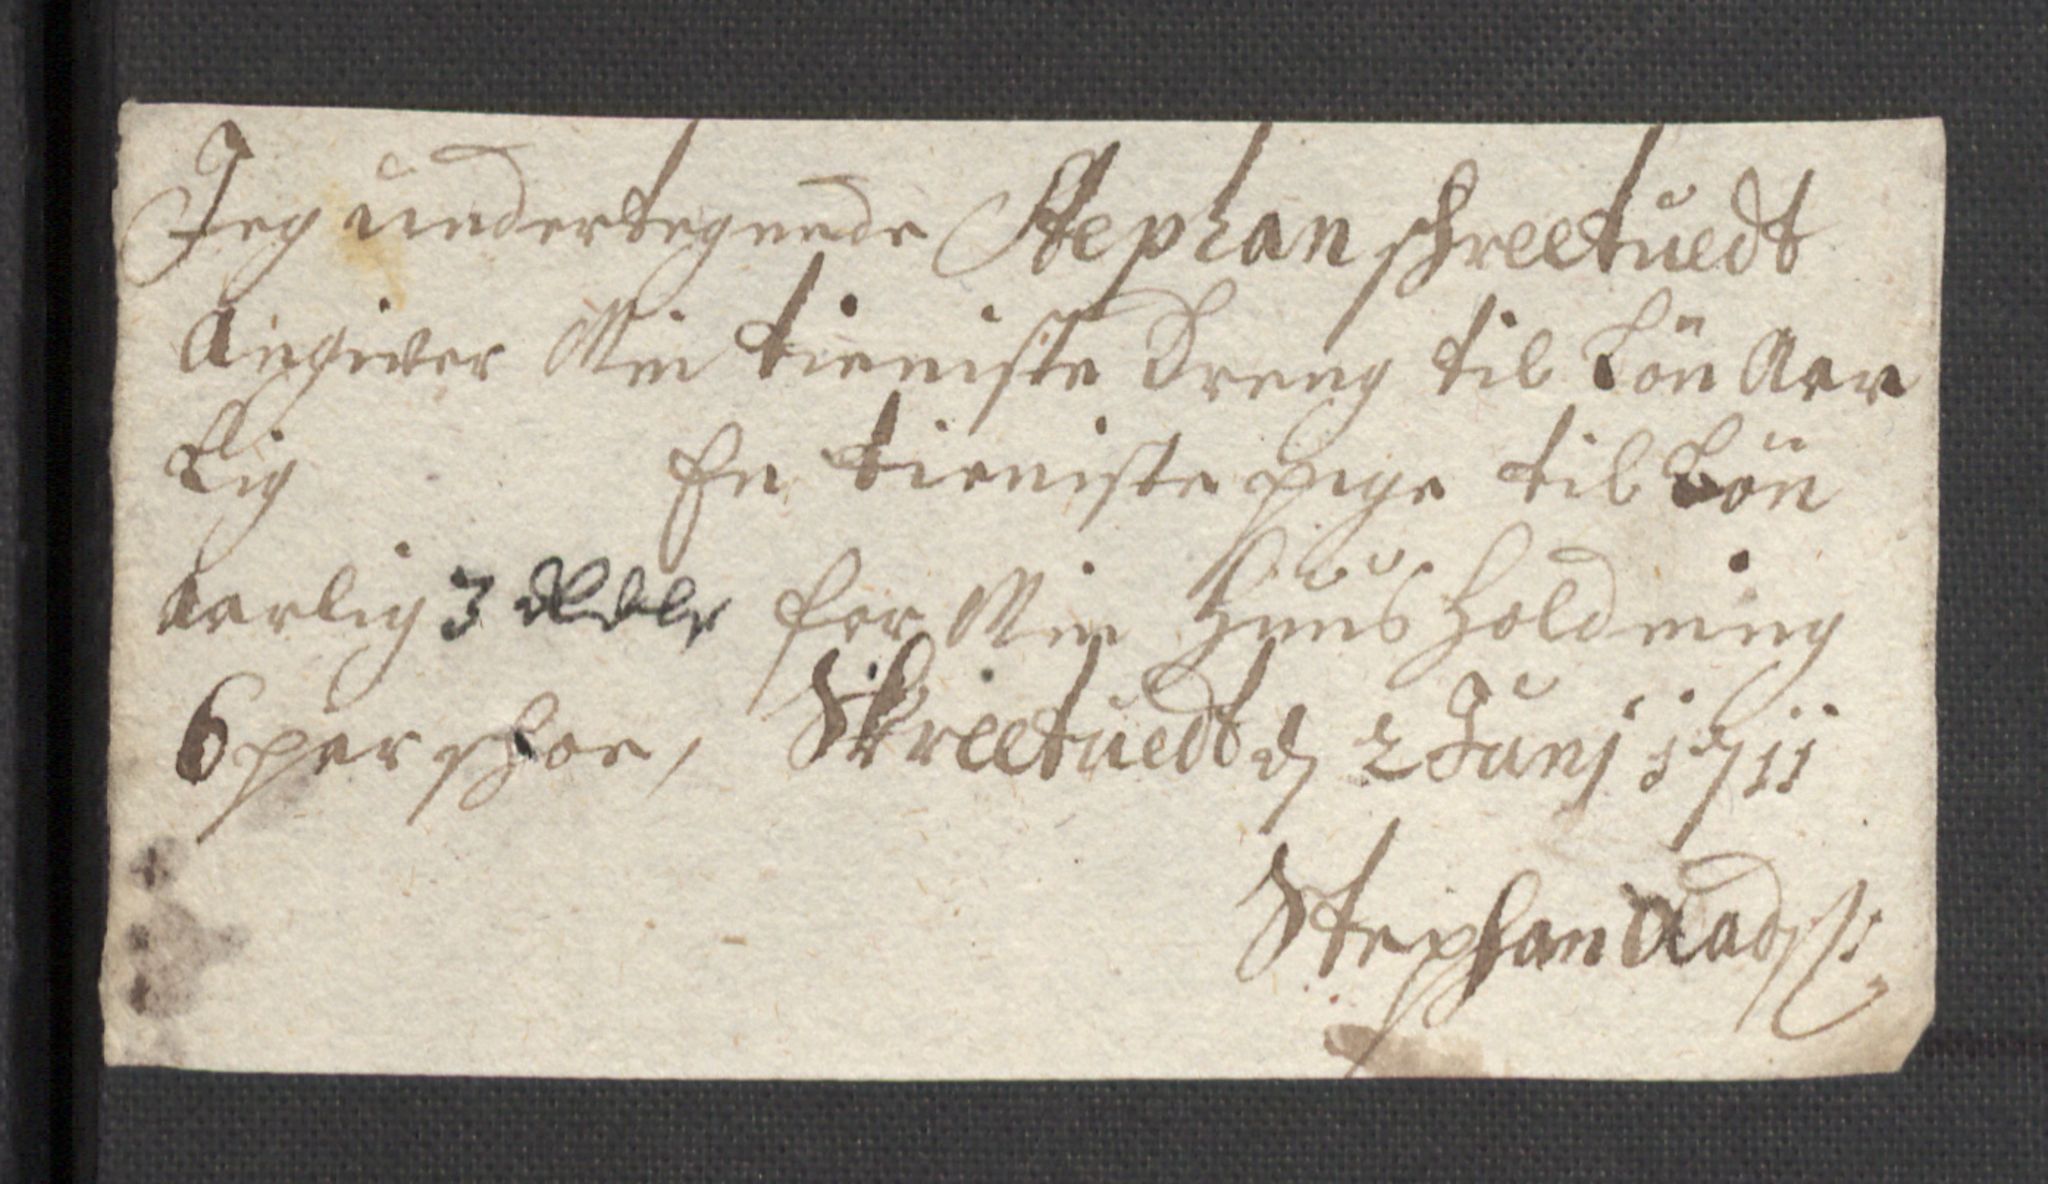 Jeg undertegnede Stephan schreetuedt
Angiver Min tieniste Dreng til Lön Aar
lig En tieniste pige til Lön
aarlig 3 for Min Huus Holdning
6 par schoe, Skreetuedt d 2 Junj 1711
Stephan